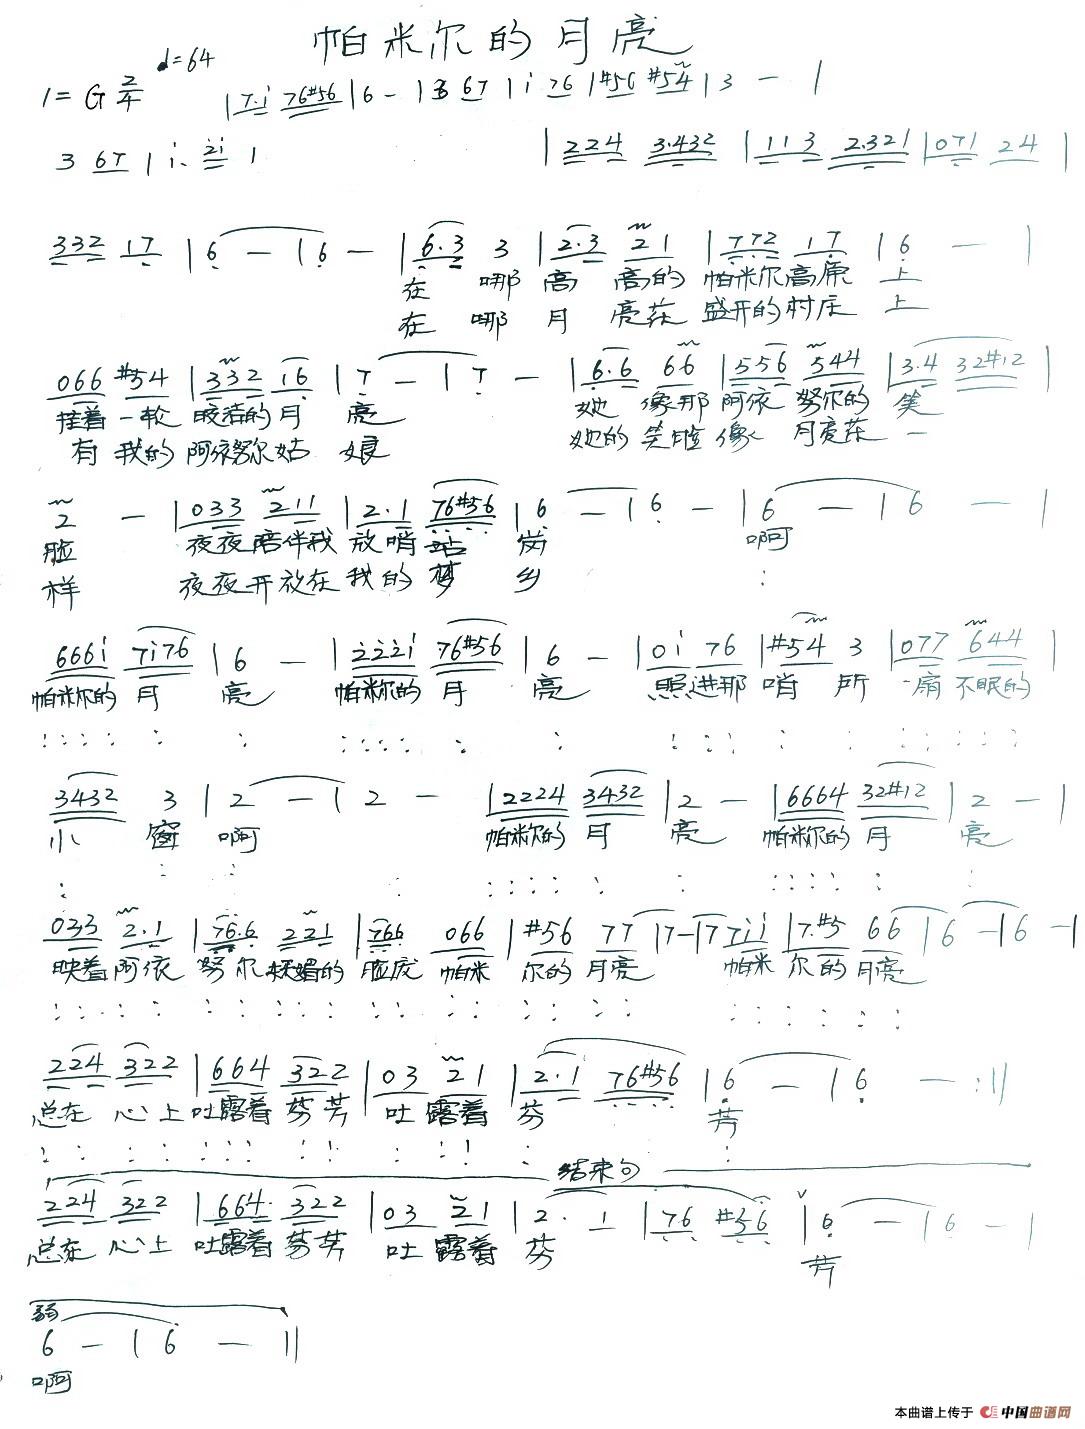 帕米尔的月亮
1=G 2/4 ♩=64
|7·i 76#56|6 - |3 67|i 76|#56 #54|3 - |
3 67|i· 2i|
|224 3·432|113 2·321|071 24|
332 17|6 - |6 - |6·3 3|2·3 21|772 17|6 - |
在 哪 高 高的 帕米尔高原 上
在 哪 月 亮花 盛开的村庄 上
066 #54|332 16|7 - |7 - |6·6 66|556 544|3·4 32#12|
挂着一轮 皎洁的月 亮 她 像那 阿依 努尔的 笑
有 我的 阿依努尔姑 娘 她的 笑脸 像 月亮花 一
2 - |033 211|2·1 76#56|6 - |6 - |6 - |6 - |
脸 夜夜陪伴我 放哨站 岗 啊
样 夜夜开放在 我的 梦 乡
666i 7i76|6 - |222i 76#56|6 - |0i 76|#54 3|077 644|
帕米尔的 月 亮 帕米尔的 月 亮 照进那 哨 所 一扇 不眠的
3432 3|2 - |2 - |2224 3432|2 - |6664 32#12|2 - |
小 窗 啊 帕米尔的 月 亮 帕米尔的 月 亮
033 2·1|76·6 221|766 066|#56 77|7-|7 7ii|7·#5 66|6 -|6 -|
映着阿依 努尔 妩媚的 脸庞 帕米 尔的 月亮 帕米 尔的月亮
224 322|664 322|03 21|2·1 76#56|6 - |6 - :||
总在 心上 吐露着 芬芳 吐 露着 芬 芳
结束句
224 322|664· 322|03 21|2· 1|76 #56|6 - |6 - |
总在 心上 吐露着 芬芳 吐 露着 芬 芳
6 - |6 - ||
啊
本曲谱上传于 中国曲谱网